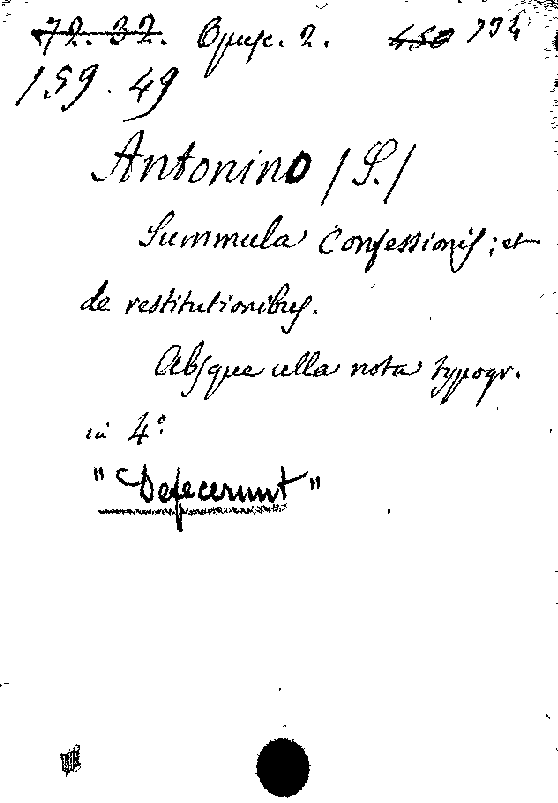 72. 32. Opusc. 2. 450 334
159. 49
Antonino /S./
Summula Confessionis; et
de restitutionibus.
Absque ulla nota typogr.
in 4°
"Defecerunt"